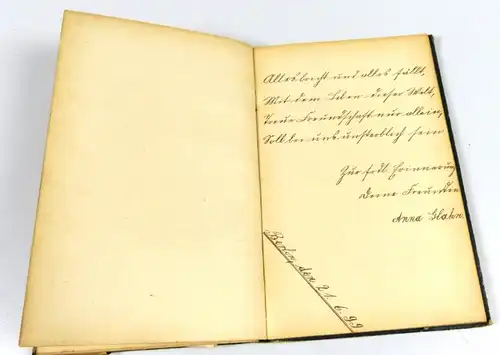 Alles bricht und alles fällt,
Mit dem Leben dieser Welt,
Treue Freundschaft nur allein,
Soll bei uns unsterblich sein
Zur frdl. Erinnerung
Deine Freundin
Anna Glahn.
den 21. 6. 99